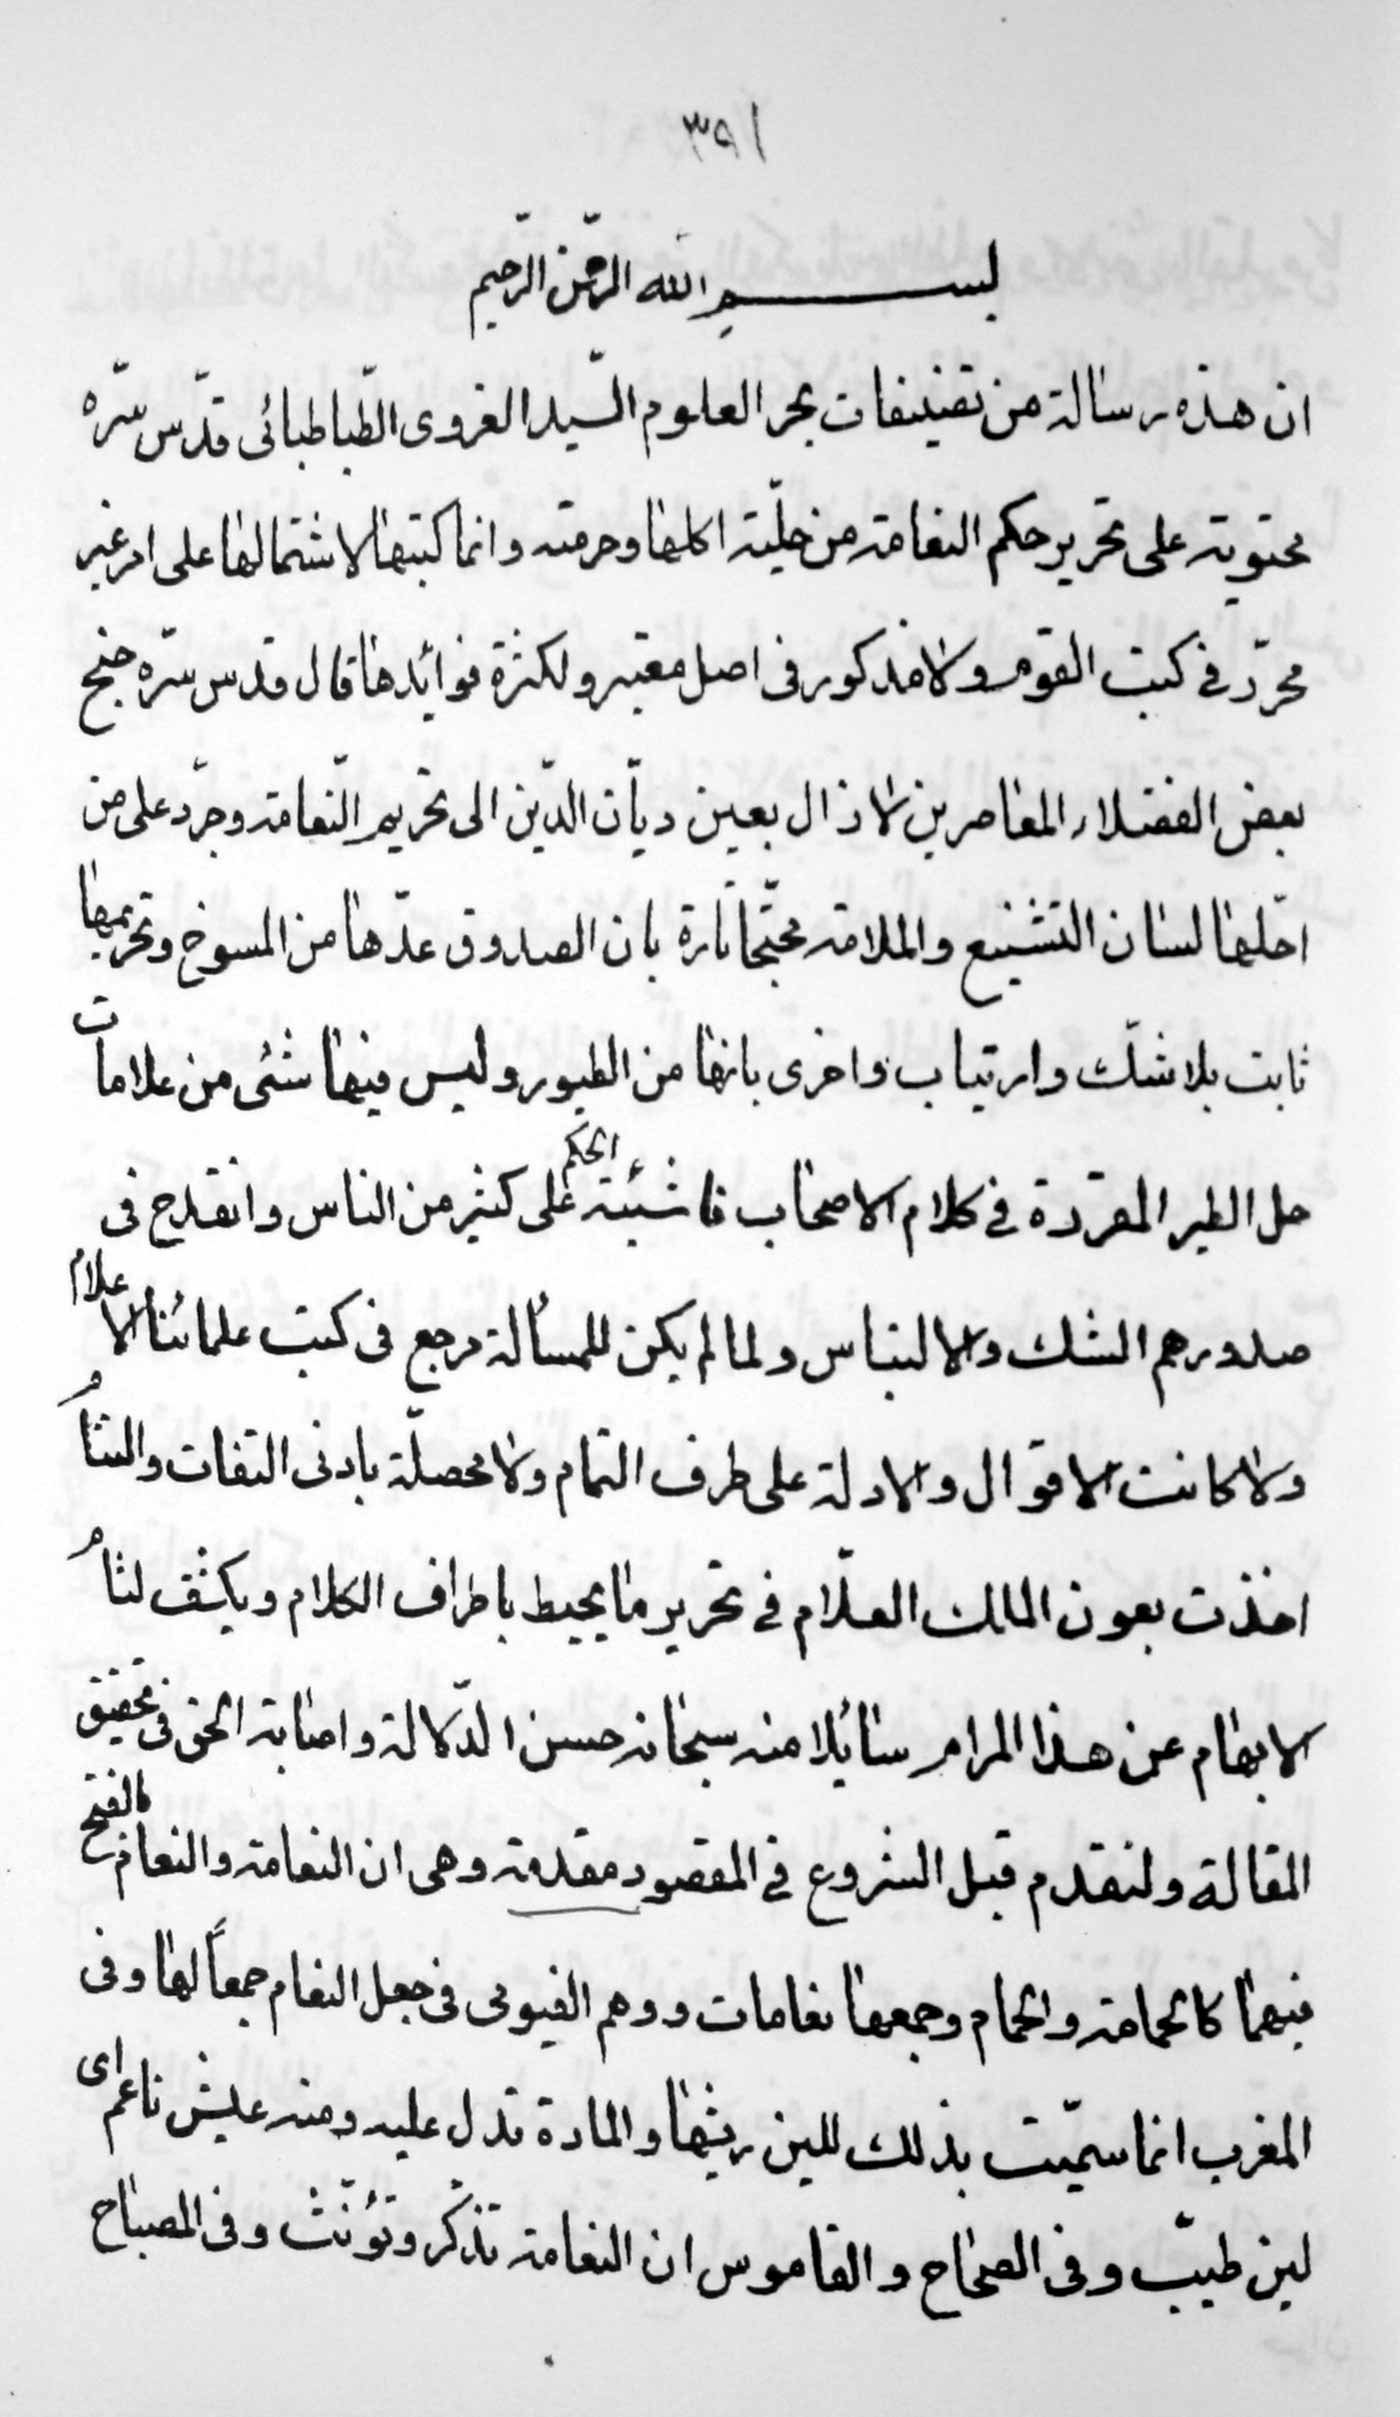 ٣٩١
بسم الله الرّحمن الرّحيم
ان هذه رسالة من تصنيفات بحر العلوم السّيد الغروى الطّباطبائى قدّس سرّه
محتوية على تحرير حكم النعامة من حلّية اكلها وحرمته وانما كتبتها لاشتمالها على امر غير
محرّر فى كتب القوم ولا مذكور فى اصل معتبر ولكثرة فوائدها قال قدس سرّه جنح
بعض الفضلاء المعاصرين لازال بعين ديّان الدّين الى تحريم النّعامة وجرّد على من
احّلها لسان التشنيع والملامة محتجّا تارة بان الصدوق عدّها من المسوخ وتحريمها
ثابت بلا شكّ وارتياب واخرى بانها من الطيور وليس فيها شئى من علامات
حل الطير المقررة فى كلام الاصحاب فاشتبه الحكم على كثير من الناس وانقدح فى
صدورهم الشك والالتباس ولما لم يكن للمسألة مرجع فى كتب علمائنا الاعلام
ولا كانت الاقوال والادلة على طرف التمام ولا محصلّة بادنى التفات والتئام
اخذت بعون المالك العلّام فى تحرير ما يحيط باطراف الكلام ويكشف لثام
الابهام عن هذا المرام سائلا منه سبحانه حسن الدّلالة واصابة الحق فى تحقيق
المقالة ولنقدم قبل الشروع فى المقصود مقدمة وهى ان النعامة والنعام بالفتح
فيهما كالحمامة والحمام وجمعها نعامات ووهم الفيومى فى جعل النعام جمعاً لها وفى
المغرب انما سمّيت بذلك للين ريشها والمادة تدل عليه ومنه عيش ناعم اى
لين طيّب وفى الصحاح والقاموس ان النعامة تذكّر وتؤنّث وفى المصباح